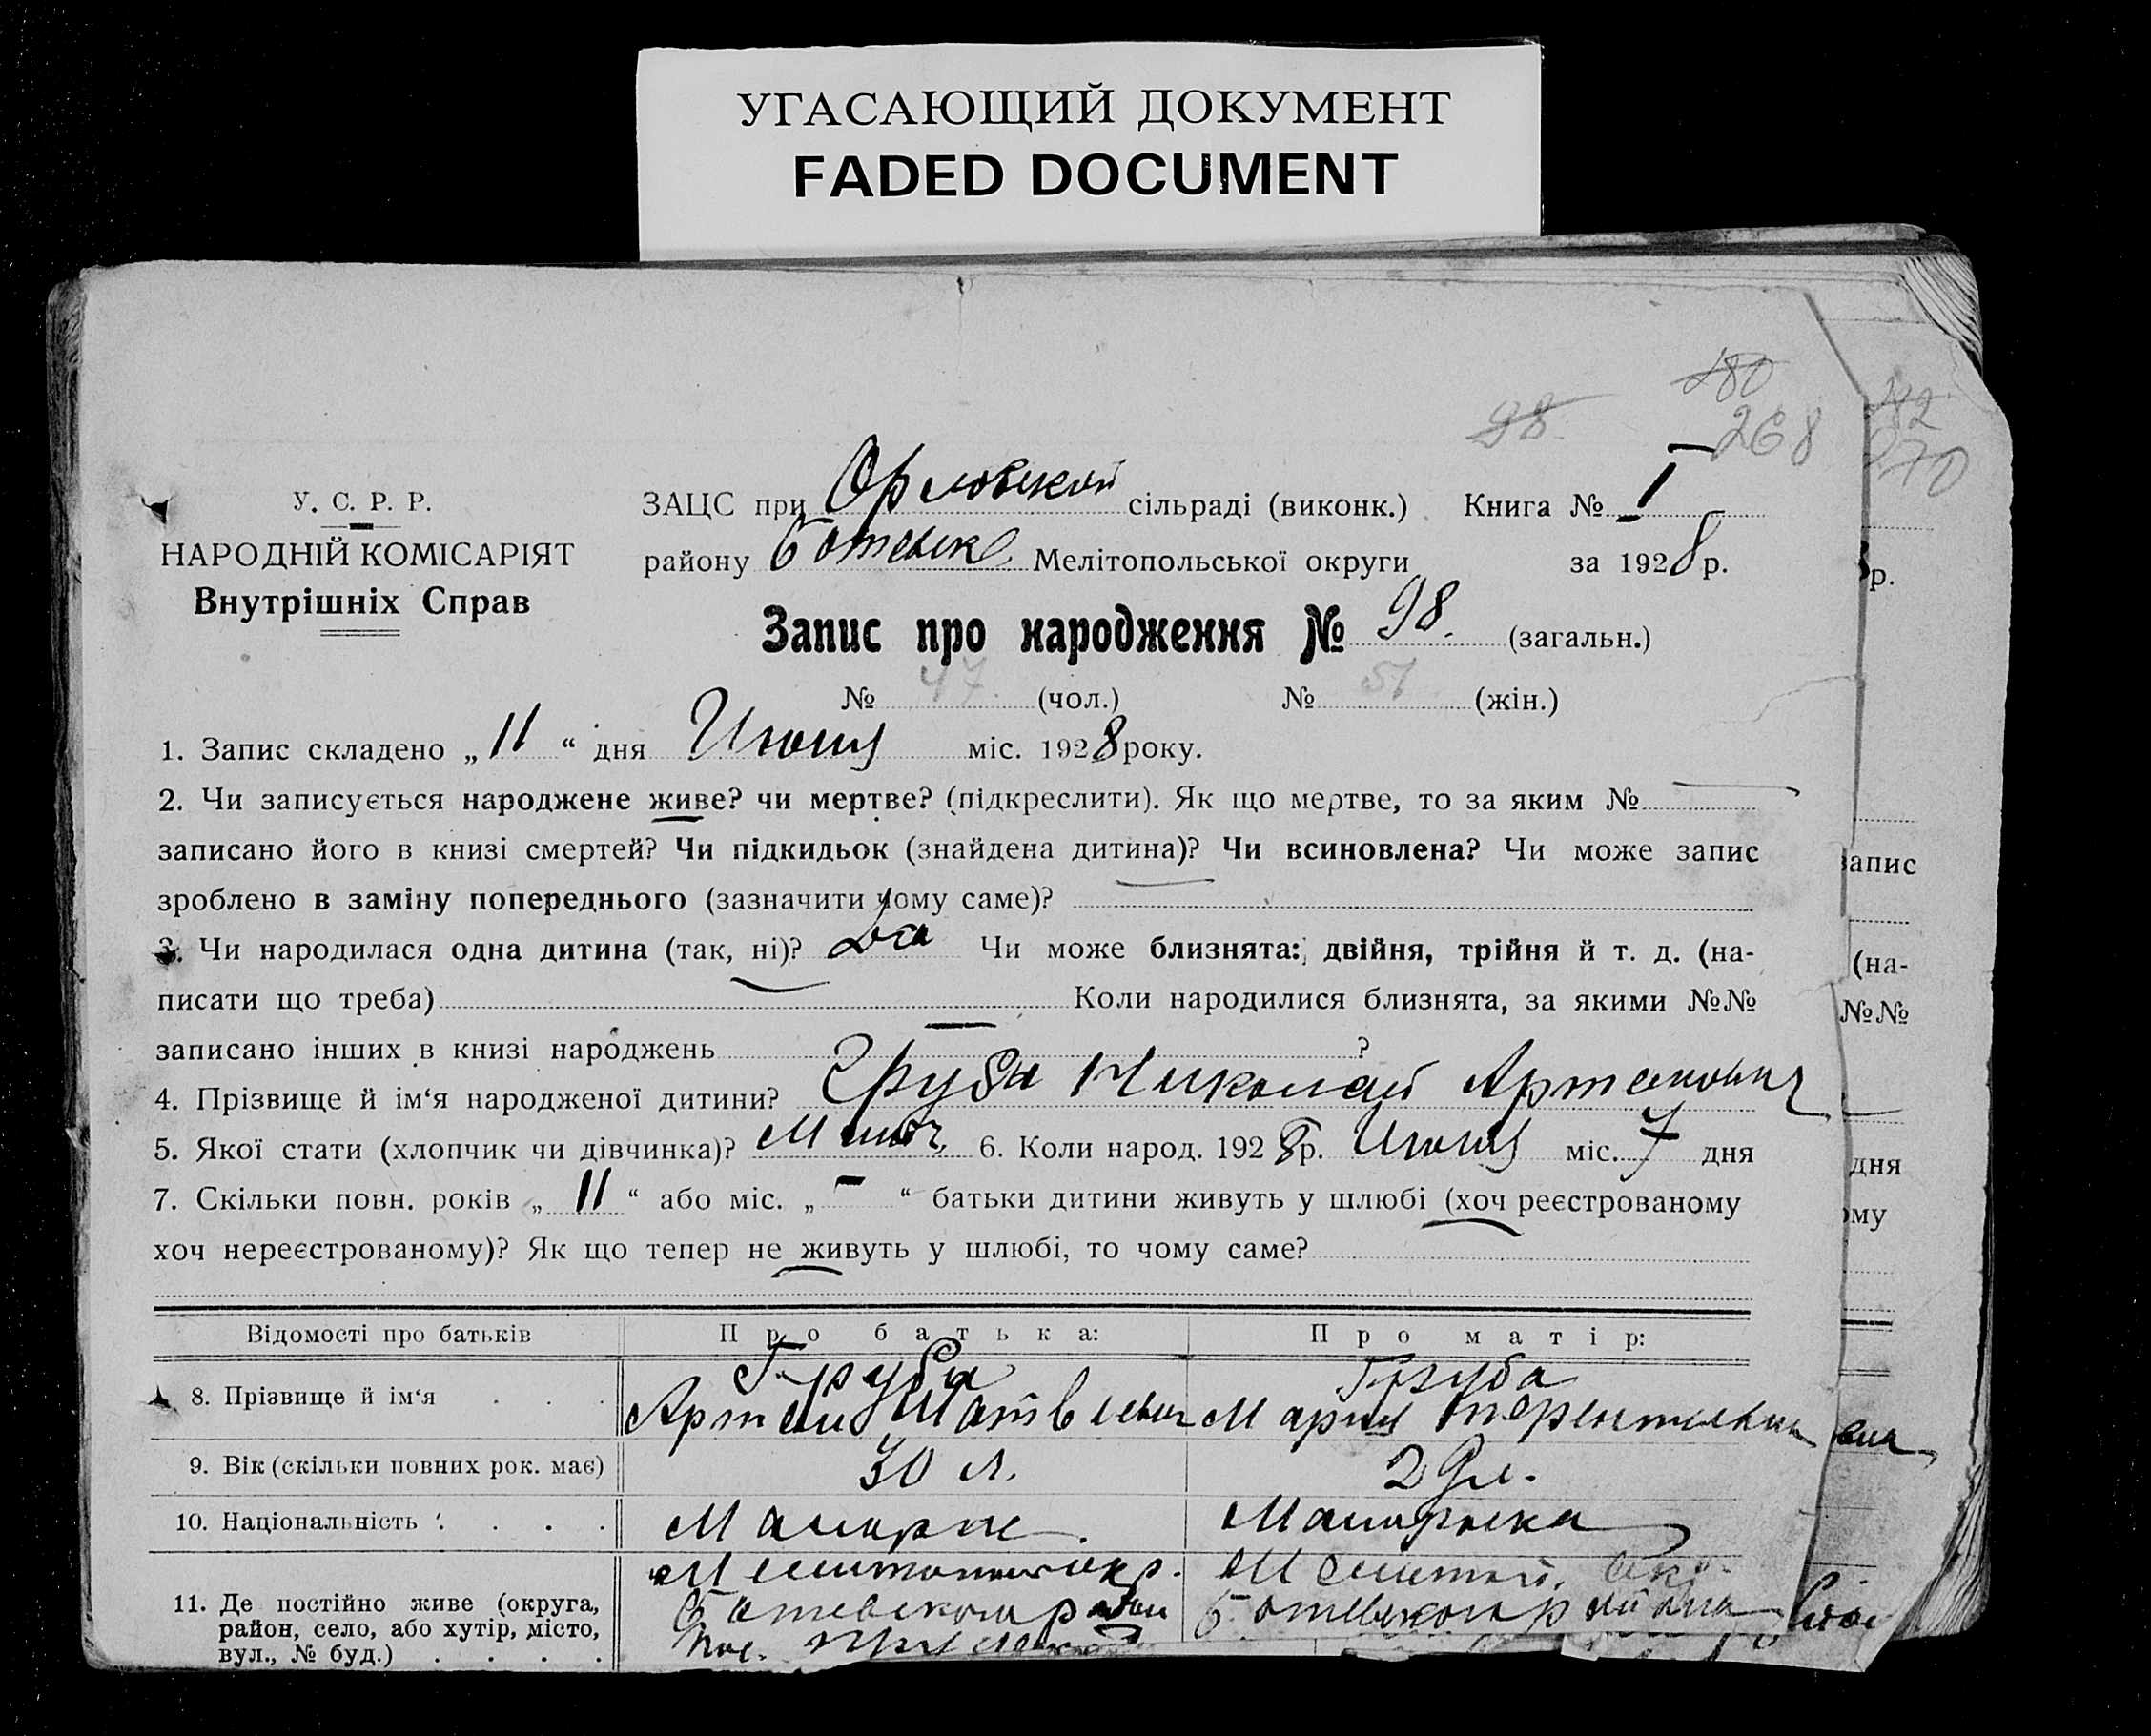 УГАСАЮЩИЙ ДОКУМЕНТ
FADED DOCUMENT
180
98.
268
182
270
У. С. Р. Р.
НАРОДНІЙ КОМІСАРІЯТ
Внутрішніх Справ
ЗАЦС при Орловской сільраді (виконк.) Книга № I
району Ботевск Мелітопольської округи за 1928 р.
Запис про народження № 98. (загальн.)
№ 47 (чол.) № 51 (жін.)
1. Запис складено „ 11 “ дня Июня міс. 1928 року.
2. Чи записується народжене живе? чи мертве? (підкреслити). Як що мертве, то за яким №
записано його в книзі смертей? Чи підкидьок (знайдена дитина)? Чи всиновлена? Чи може запис
зроблено в заміну попереднього (зазначити чому саме)?
3. Чи народилася одна дитина (так, ні)? Да Чи може близнята: двійня, трійня й т. д. (на-
писати що треба) Коли народилися близнята, за якими №№
записано інших в книзі народжень ?
4. Прізвище й ім‘я народженої дитини? Груба Николай Артемович
5. Якої стати (хлопчик чи дівчинка)? 6. Коли народ. 1928 р. Июня міс. 7 дня
7. Скільки повн. років „ 11 “ або міс. „ – “ батьки дитини живуть у шлюбі (хоч реєстрованому
хоч нереєстрованому)? Як що тепер не живуть у шлюбі, то чому саме?
Відомості про батьків Про батька: Про матір:
8. Прізвище й ім‘я Груба Артем Матвеевич Груба Мария Терентиевна
9. Вік (скільки повних рок. має) 30 л. 29 л.
10. Національність
11. Де постійно живе (округа, Мелитоп. окр.
район, село, або хутір, місто, Ботевского района Ботевского района
вул., № буд.) пос.
р.
запис
(на-
№№
дня
ому